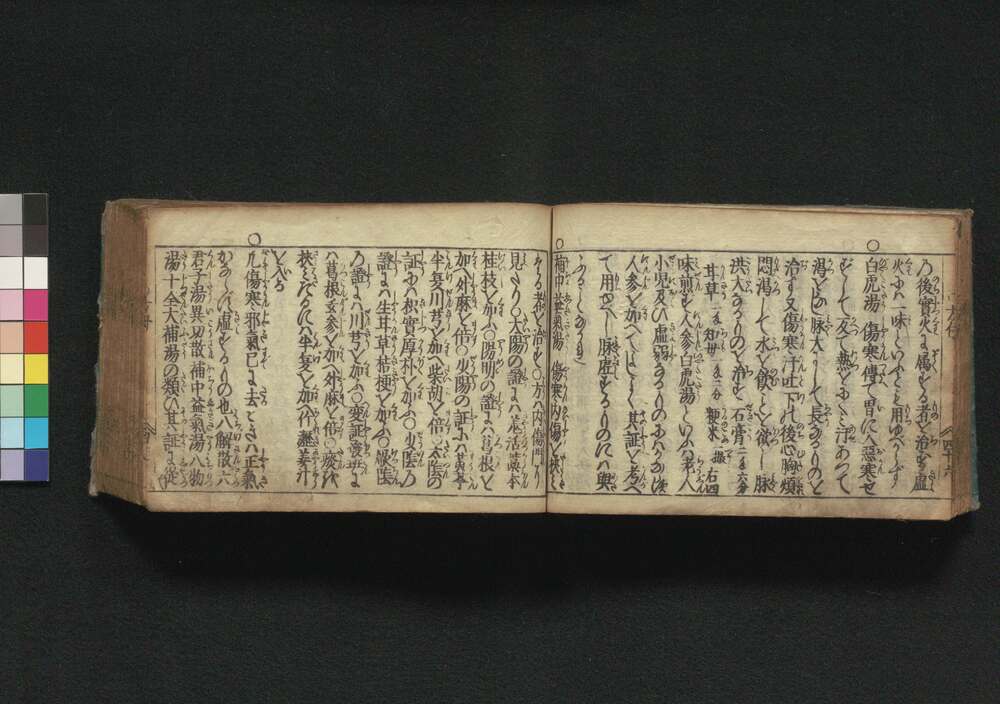 乃後實火に属するを治す虚
火には一味といふとも用ゆべからず
白虎湯 傷寒傳て胃に入悪寒せ
ずして反て熱をおそれ汗あつて
渇をし脉大にして長なるものを
治す又傷寒汗吐下の後心胸煩
悶渇して水を飲んと欲し脉
洪大なるものを治す 石膏二匁六分
甘草一匁 知母一匁二分 粳米一撮 右四
味煎ず人参白虎湯といふは老人
小児及び虚弱なるものには
人参を加へてよし其証を考へ
て用ゆべし脉虚するものには與
ふべからず
補中益氣湯 傷寒内傷を挾
そる者を治す○方ハ内傷門に
見たり○太陽の證にハ羗活藁本
桂枝を加ふ○陽明の證にハ葛根を
加へ升麻を倍○少陽の証にハ黄芩
半夏川芎を加へ柴胡を倍○太陰の
証にハ枳實厚朴を加ふ○少陰の
證にハ生甘草桔梗を加ふ○厥陰
乃證にハ川芎を加ふ○変証發斑に
ハ葛根玄参を加へ升麻を倍○痰を
挾むにハ半夏を加へ竹瀝姜汁
を入る
凡傷寒邪氣已に去ときハ正氣
かならず虚するもの也ハ解散六
君子湯異功散補中益氣湯八物
湯十全大補湯の類ハ其証に従